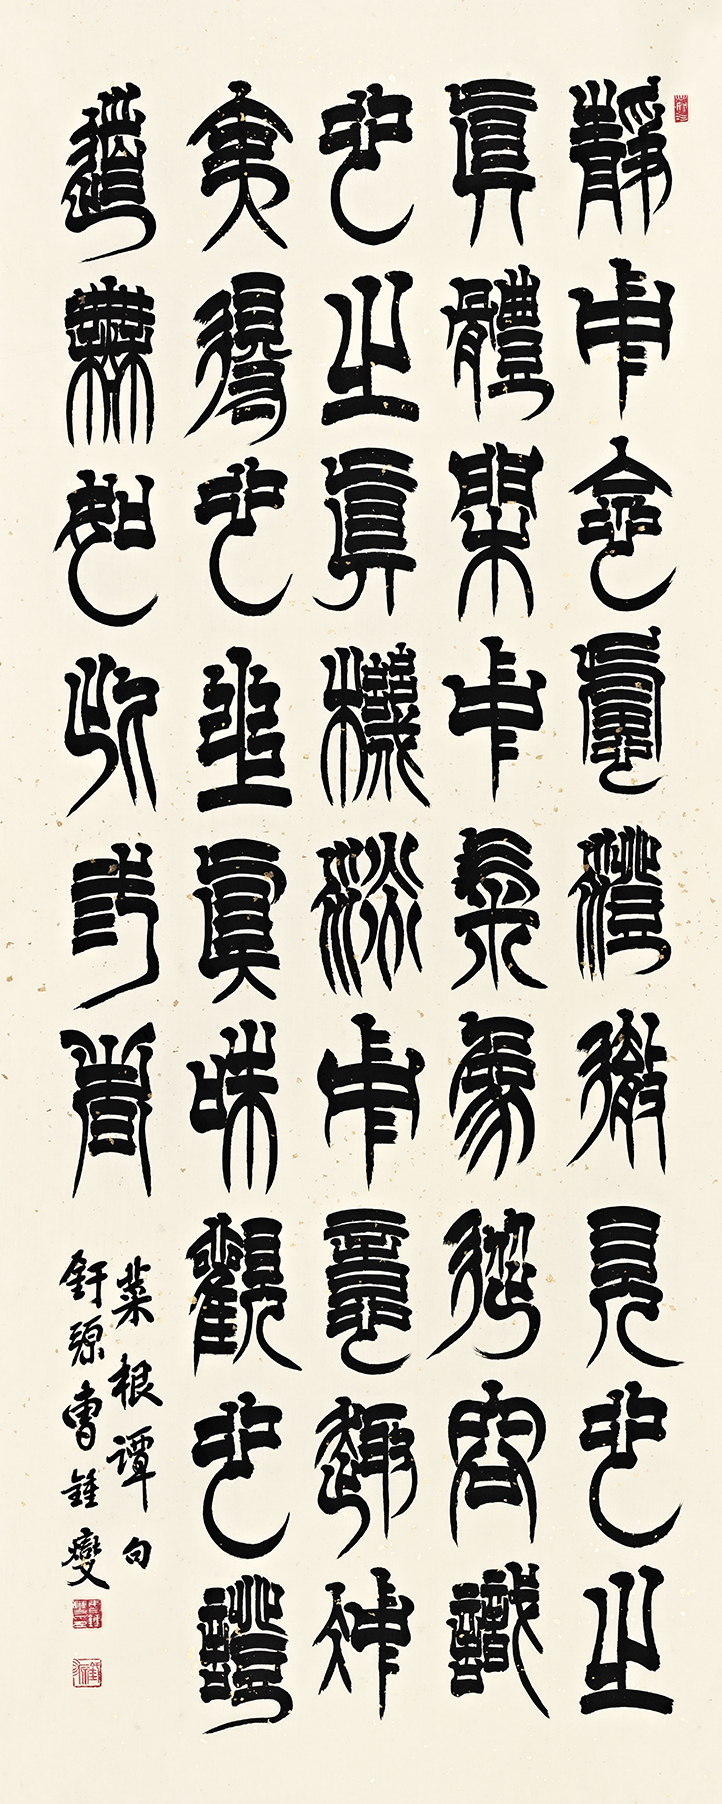 靜中念慮澄徹見心之
眞體閑中氣象從容識
心之眞機淡中意趣沖
夷得心之眞味觀心證
道無如此三者
菜根譚句
釬源曹鍾燮